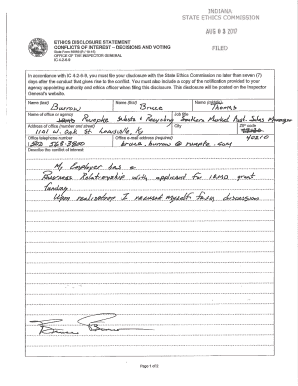 INDIANA
STATE ETHICS COMMISSION
AUG 03 2017
FILED
ETHICS DISCLOSURE STATEMENT
CONFLICTS OF INTEREST – DECISIONS AND VOTING
OFFICE OF THE INSPECTOR GENERAL
IC 4-2-6-9
In accordance with IC 4-2-6-9, you must file your disclosure with the State Ethics Commission no later than seven (7)
days after the conduct that gives rise to the conflict. You must also include a copy of the notification provided to your
agency appointing authority and ethics officer when filing this disclosure. This disclosure will be posted on the Inspector
General's website.
Name (last)
Name (first)
Name (middle)
Burrow
Bruce
Thomas
Name of office or agency
Job title
Rumpke
Recycling
Sales Manager
Address of office (number and street)
City
ZIP code
1101 W. Oak St. Louisville, Ky
40210
Office telephone number
Office e-mail address (required)
502 568-3800
bruce.burrow @ rumpke.com
Describe the conflict of interest:
My Employer has a
Business Relationship with applicant for IRMD grant
funding.
Upon realization I recused myself from discussion
Page 1 of 2